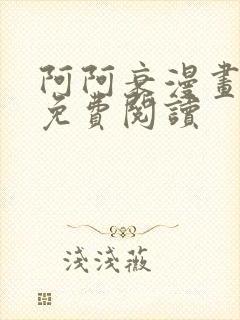 阿阿衰漫畫
免費閱讀
淺淺薇